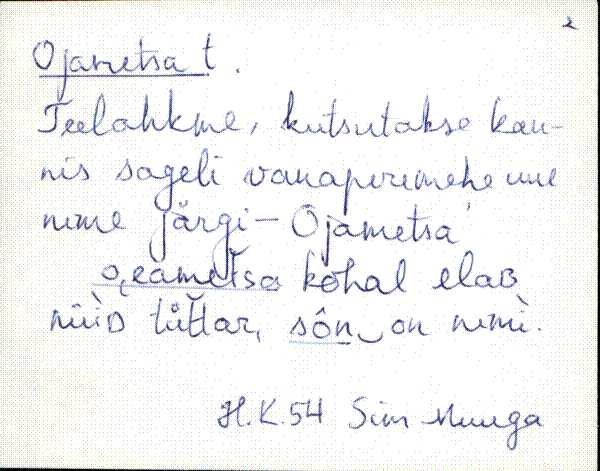 2
Ojametsa t.
Teelahkme, kutsutakse kau-
nis sageli vanaperemehe
nime järgi – Ojametsa
kohal elaʙ
tüttar, sôn on nimì.
H.K. 54 Sim Muuga